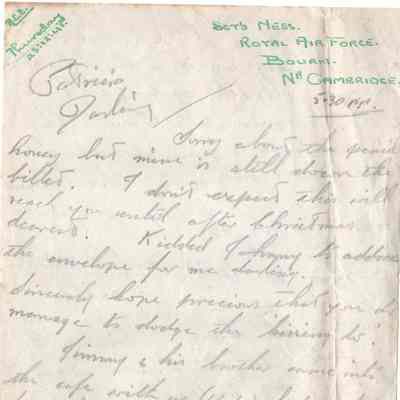 Thursday
Sgt's Mess.
Royal Air Force.
Bourn.
Nr Cambridge.
5.30 pm.
Patricia
Darling
Sorry about the pencil
honey but mine is still down the
billet. I don't expect this will
reach you until after Christmas
dearest. Kidded Johnny to address
the envelope for me darling.
Sincerely hope precious that you do
manage to dodge the
Jimmy & his brother came into
the cafe with us